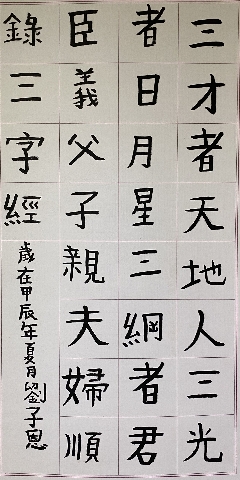 三才者天地人三光
者日月星三綱者君
臣義父子親夫婦順
錄三字經
歲在甲辰年夏月劉子恩